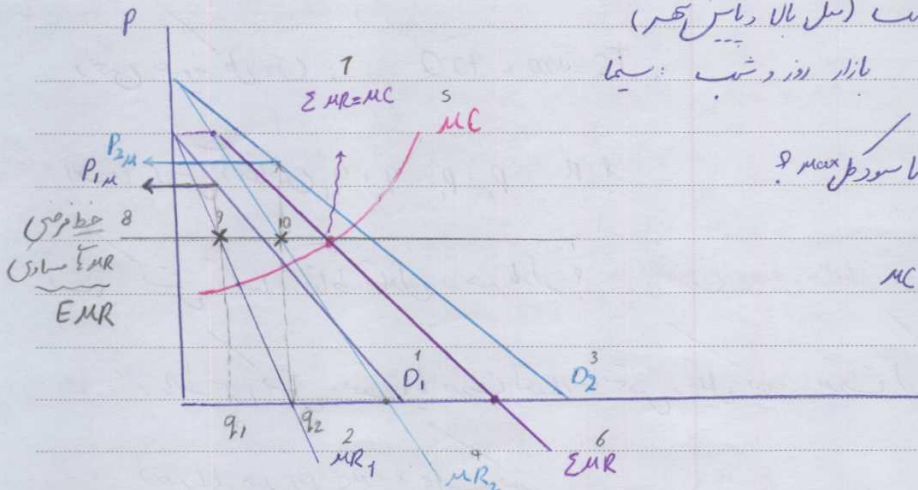 (مثل بالا و پایین شهر)
بازار روز و شب : سینما
P
7
ΣMR=MC
5
MC
P₂M
P₁M
سود کل max ؟
8 خط فرضی
مساوی ΣMR
EMR
9
10
MC
D₁ 1
D₂ 3
q₁
q₂
2
MR₁
4
MR₂
6
ΣMR